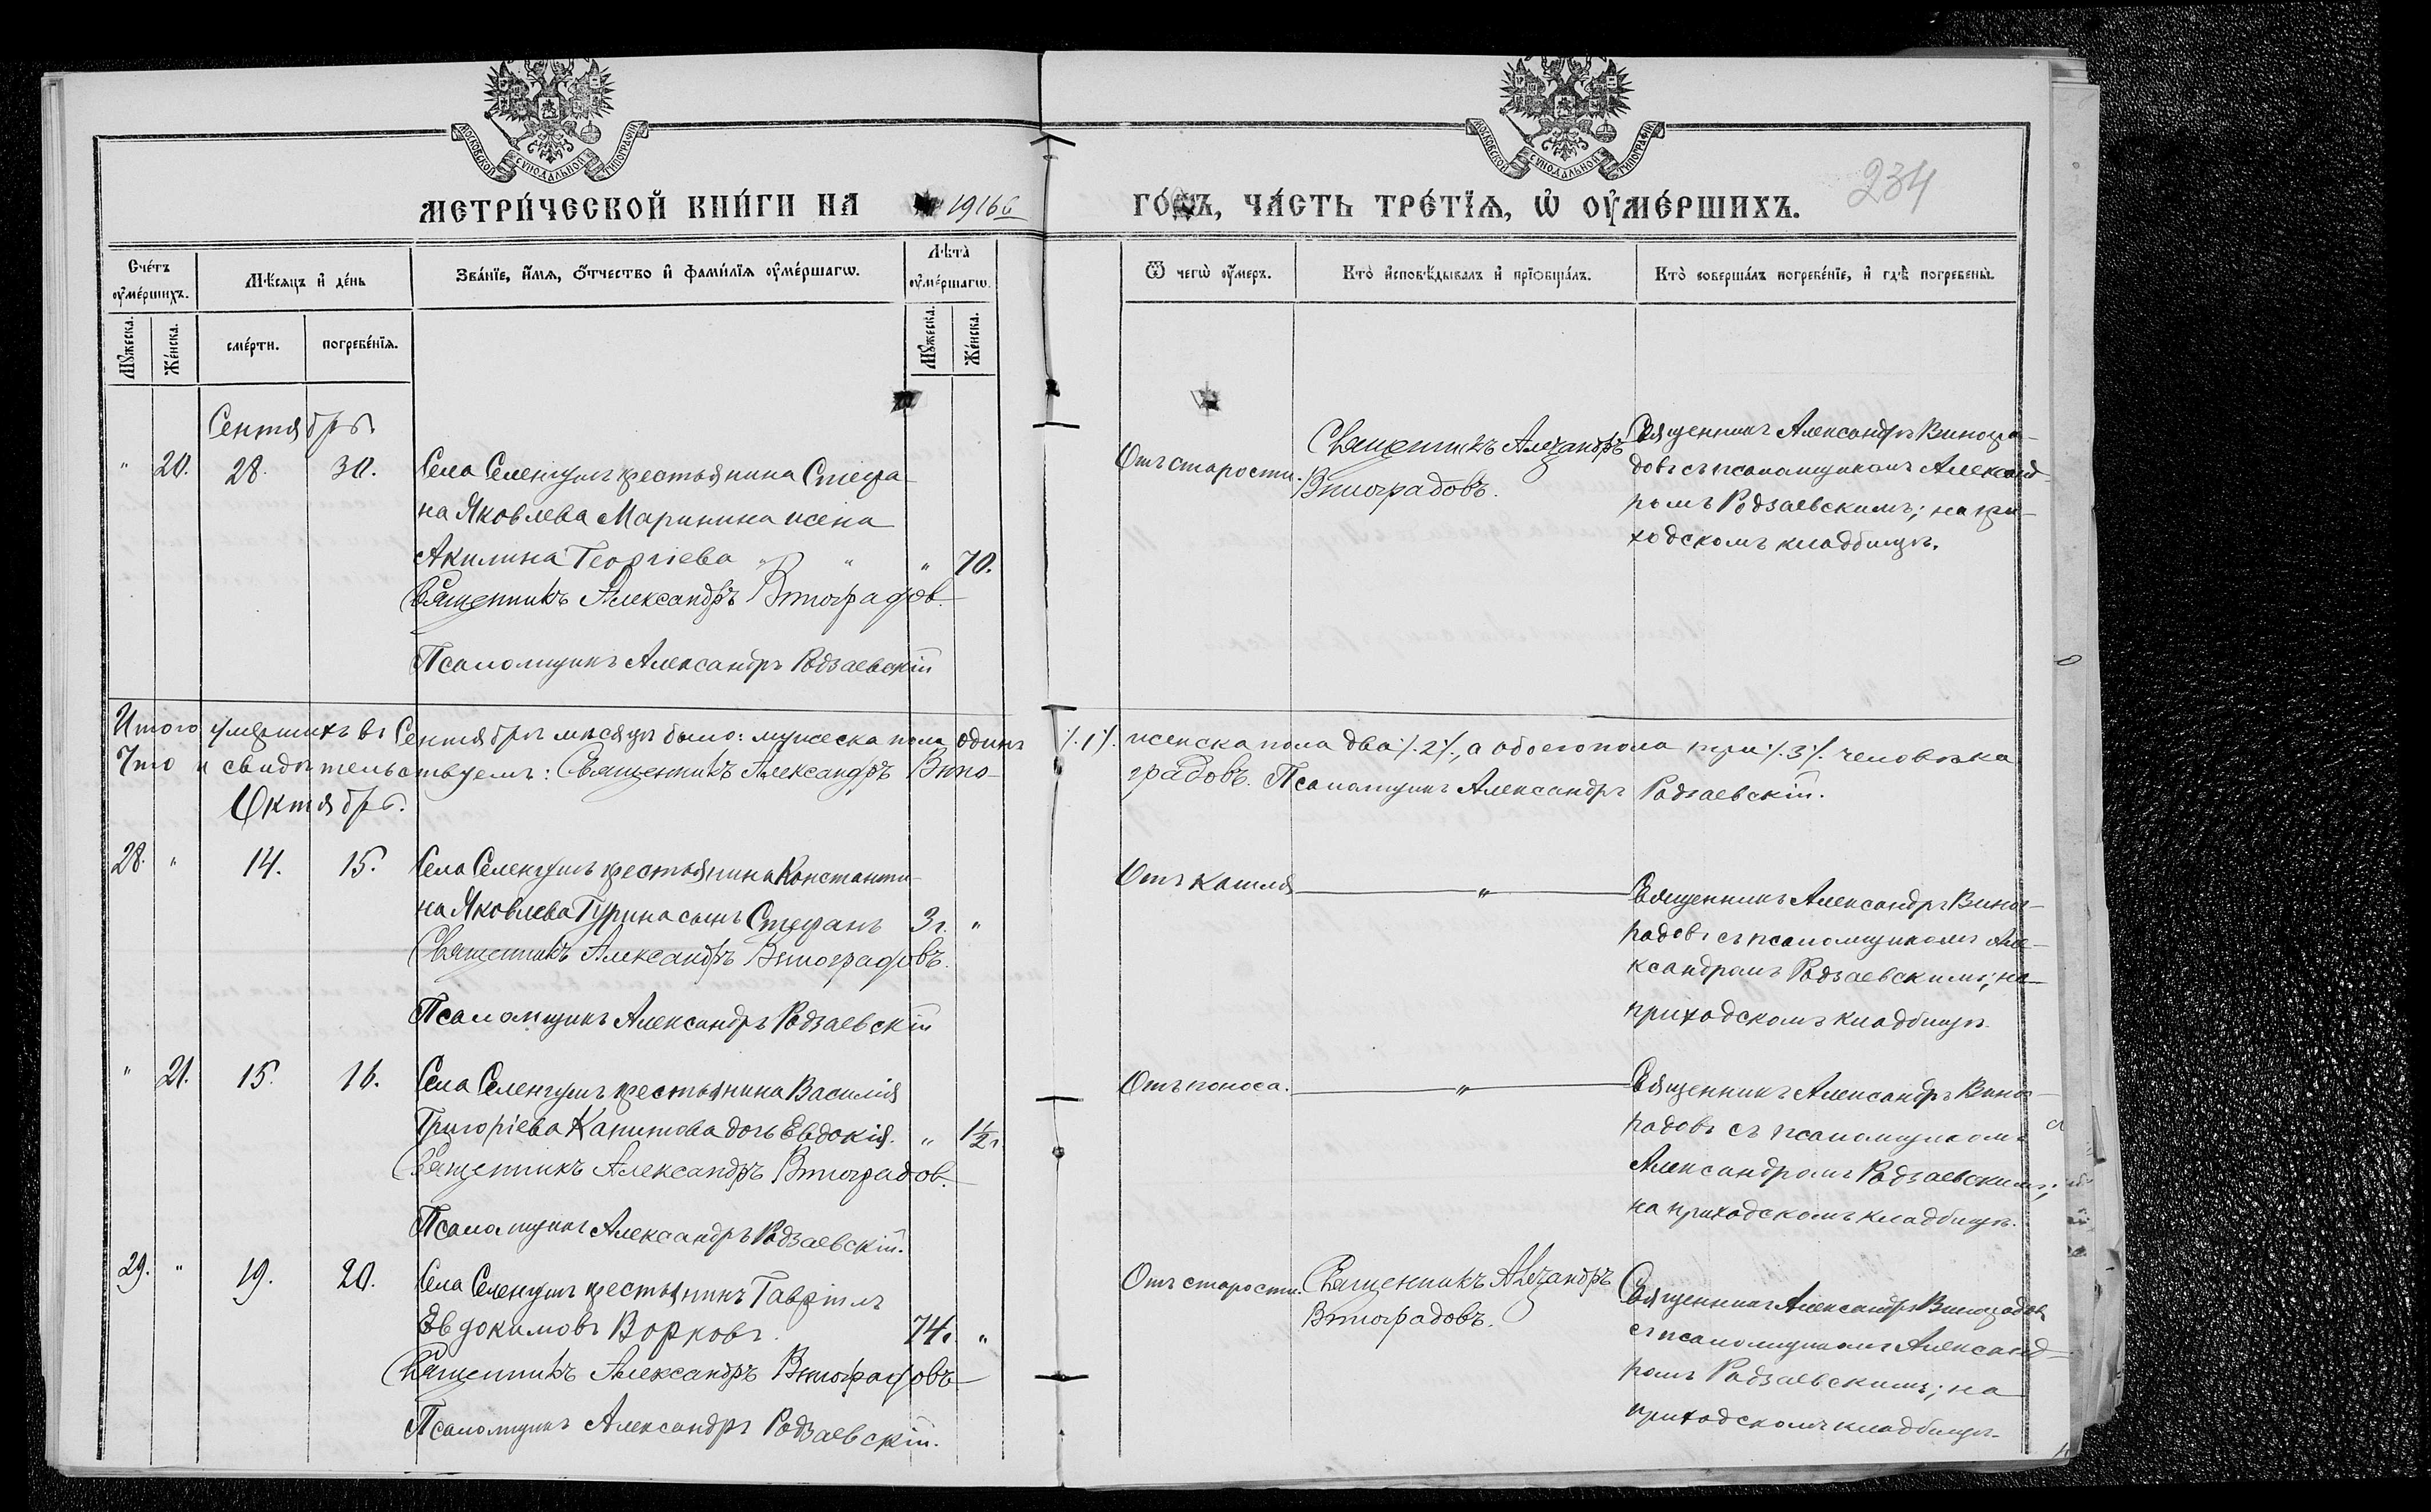 МОСКОВСКОЙ СѴНОДАЛЬНОЙ ТИПОГРАФІИ
МОСКОВСКОЙ СѴНОДАЛЬНОЙ ТИПОГРАФІИ
МЕТРИ́ЧЕСКОЙ КНИ́ГИ НА 1916
ГО́ДЪ, ЧА́СТЬ ТРЕ́ТЇѦ, Ѡ҆ ОУ҆МЕ́РШИХЪ.
234
Сче́тъ оу҆ме́ршихъ.
Мѣ́сяцъ и҆ де́нь
Зва́нїе, и҆́мѧ, ѻ҆́тчество и҆ фами́лїѧ оу҆ме́ршагѡ.
Лѣ́та оу҆ме́ршагѡ.
Ѿ чегѡ̀ оу҆́меръ.
Кто̀ и҆сповѣ́дывалъ и҆ прїѡбща́лъ.
Кто̀ соверша́лъ погребе́нїе, и҆ гдѣ̀ погребены̀.
Мꙋ́жеска.
Же́нска.
сме́рти.
погребе́нїѧ.
Мꙋ́жеска.
Же́нска.
Сентябрь.
" 20. 28. 30. Села Селенгушъ крестьянина Стефа-
на Яковлева Маринина жена
Акилина Георгіева " " " 70.
Священникъ Александръ Виноградов.
Псаломщикъ Александръ Родзаевскій
Отъ старости.
Священникъ Александръ
Виноградовъ.
Священникъ Александръ Виногра-
довъ съ псаломщикомъ Александ-
ромъ Родзаевскимъ; на при-
ходскомъ кладбищѣ.
Итого умершихъ въ Сентябрѣ мѣсяцѣ было: мужеска пола одинъ ./.1/. женска пола два ./.2/., а обоего пола три ./.3/. человѣка
Что и свидѣтельствуемъ: Священникъ Александръ Вино-
градовъ. Псаломщикъ Александръ Родзаевскій.
Октябрь.
28. " 14. 15. Села Селенгушъ крестьянина Константи-
на Яковлева Гурина сынъ Стефанъ 3 г. "
Священникъ Александръ Виноградовъ.
Псаломщикъ Александръ Родзаевскій
Отъ кашля
"
Священникъ Александръ Виног-
радовъ съ псаломщикомъ Але-
ксандромъ Родзаевскимъ; на
приходскомъ кладбищѣ.
" 21. 15. 16. Села Селенгушъ крестьянина Василія
Григоріева Капитова дочь Евдокія. " 1½ г
Священникъ Александръ Виноградов.
Псаломщикъ Александръ Родзаевскій.
Отъ поноса.
"
Священникъ Александръ Виног-
радовъ съ псаломщикомъ
Александромъ Родзаевскимъ;
на приходскомъ кладбищѣ.
29. " 19. 20. Села Селенгушъ крестьянинъ Гавріилъ
Евдокимовъ Ворковъ. 74. "
Священникъ Александръ Виноградовъ
Псаломщикъ Александръ Родзаевскій.
Отъ старости.
Священникъ Александръ
Виноградовъ.
Священникъ Александръ Виноградовъ
съ псаломщикомъ Александ-
ромъ Родзаевскимъ; на
приходскомъ кладбищѣ.